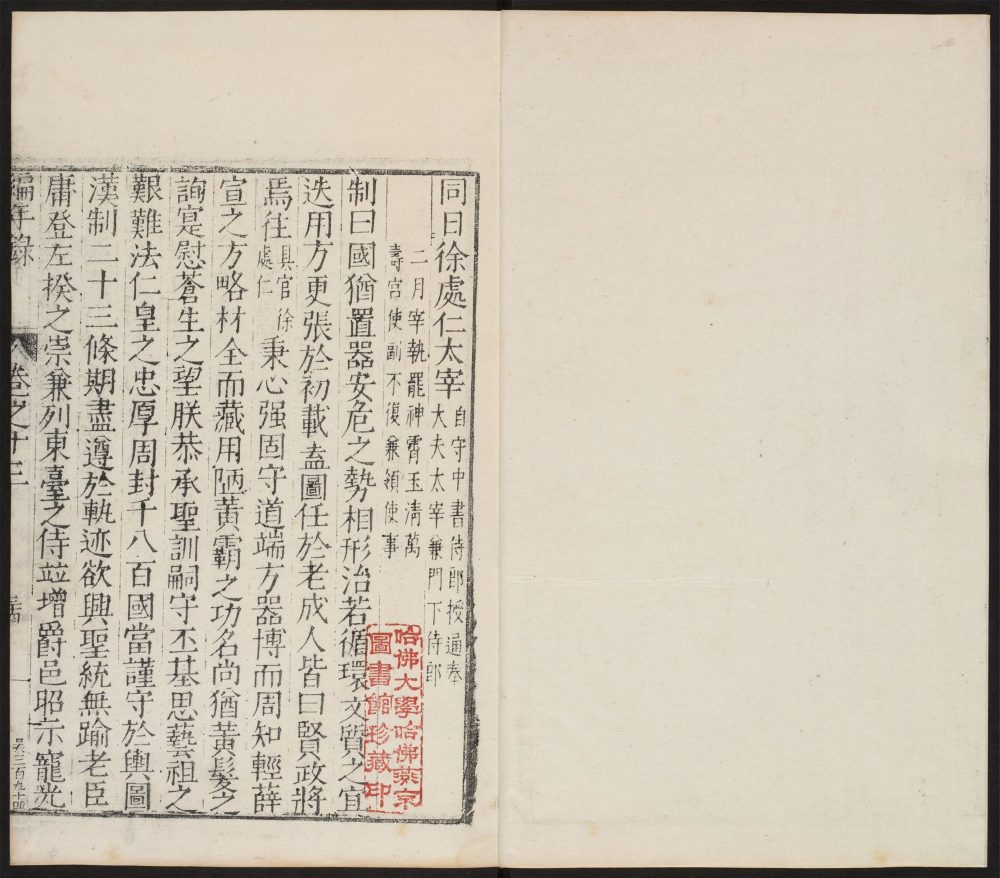 同日徐處仁太宰自守中書侍郎授通奉
大夫太宰兼門下侍郎
二月宰執罷神霄玉清萬
壽宮使副不復兼領使事
制曰國猶置器安危之勢相形治若循環文質之宜
迭用方更張於初載盍圖任於老成人皆曰賢政將
焉往具官徐處仁秉心强固守道端方器博而周知輕薛
宣之方略材全而藏用陋黃霸之功名尚猶黃髮之
詢寔慰蒼生之望朕恭承聖訓嗣守丕基思藝祖之
艱難法仁皇之忠厚周封千八百國當謹守於輿圖
漢制二十三條期盡遵於軌迹欲興聖統無踰老臣
庸登左揆之崇兼列東臺之侍竝增爵邑昭示寵光
編年錄
卷之十三
吳三百九十四
哈佛大學哈佛燕京
圖書館珍藏印